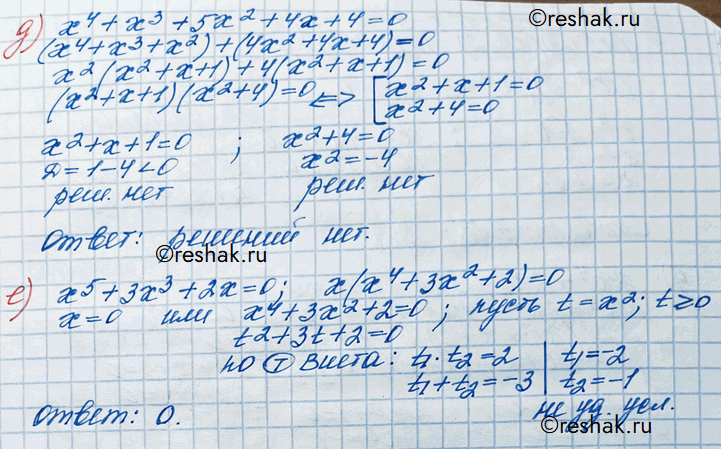 ©reshak.ru
д) x⁴ + x³ + 5x² + 4x + 4 = 0
(x⁴ + x³ + x²) + (4x² + 4x + 4) = 0
x² (x² + x + 1) + 4(x² + x + 1) = 0
(x² + x + 1) (x² + 4) = 0 <=> [ x² + x + 1 = 0
x² + 4 = 0
x² + x + 1 = 0 ; x² + 4 = 0
D = 1 - 4 < 0 x² = -4
реш. нет реш. нет
Ответ: решений нет.
©reshak.ru
е) x⁵ + 3x³ + 2x = 0; x(x⁴ + 3x² + 2) = 0
x = 0 или x⁴ + 3x² + 2 = 0 ; пусть t = x²; t ≥ 0
t² + 3t + 2 = 0
по Ⓣ Виета: t₁ · t₂ = 2 | t₁ = -2
t₁ + t₂ = -3 | t₂ = -1
Ответ: 0. не уд. усл.
©reshak.ru